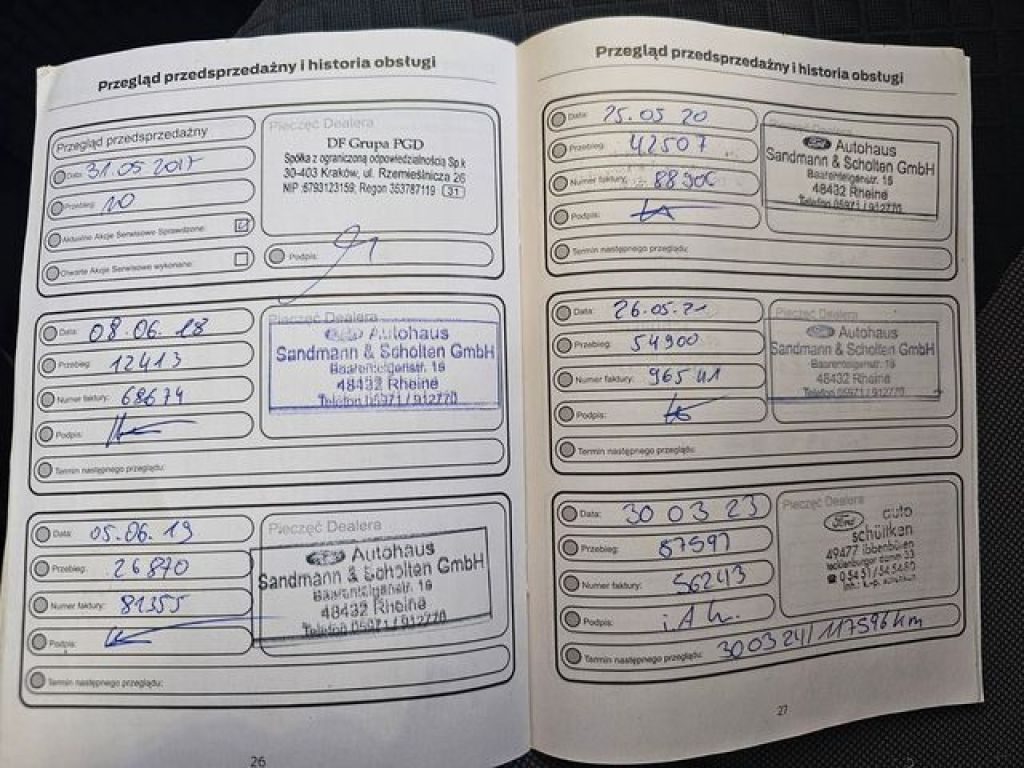 Przegląd przedsprzedażny i historia obsługi
Przegląd przedsprzedażny
Data: 31.05 2017
Przebieg: 10
Aktualne Akcje Serwisowe Sprawdzone:
Otwarte Akcje Serwisowe wykonane:
Pieczęć Dealera
DF Grupa PGD
Spółka z ograniczoną odpowiedzialnością Sp.k
30-403 Kraków, ul. Rzemieślnicza 26
NIP :6793123159; Regon 353787119 31
Podpis:
Data: 08.06.18
Przebieg: 12413
Numer faktury: 68674
Podpis:
Termin następnego przeglądu:
Pieczęć Dealera
Ford Autohaus
Sandmann & Scholten GmbH
Baarentelgenstr. 16
48432 Rheine
Telefon 05971 / 912770
Data: 05.06.19
Przebieg: 26870
Numer faktury: 81355
Podpis:
Termin następnego przeglądu:
Pieczęć Dealera
Ford Autohaus
Sandmann & Scholten GmbH
Baarentelgenstr. 16
48432 Rheine
Telefon 05971 / 912770
26
Przegląd przedsprzedażny i historia obsługi
Data: 25.05 20
Przebieg: 42507
Numer faktury: 88906
Podpis:
Termin następnego przeglądu:
Pieczęć Dealera
Ford Autohaus
Sandmann & Scholten GmbH
Baarentelgenstr. 16
48432 Rheine
Telefon 05971 / 912770
Data: 26.05.21
Przebieg: 54900
Numer faktury: 96541
Podpis:
Termin następnego przeglądu:
Pieczęć Dealera
Ford Autohaus
Sandmann & Scholten GmbH
Baarentelgenstr. 16
48432 Rheine
Telefon 05971 / 912770
Data: 30 03 23
Przebieg: 87597
Numer faktury: 56243
Podpis: i.A
Termin następnego przeglądu: 30 03 24 / 117596 km
Pieczęć Dealera
Ford auto
schüllken
49477 Ibbenbüren
Tecklenburger Damm 33
27